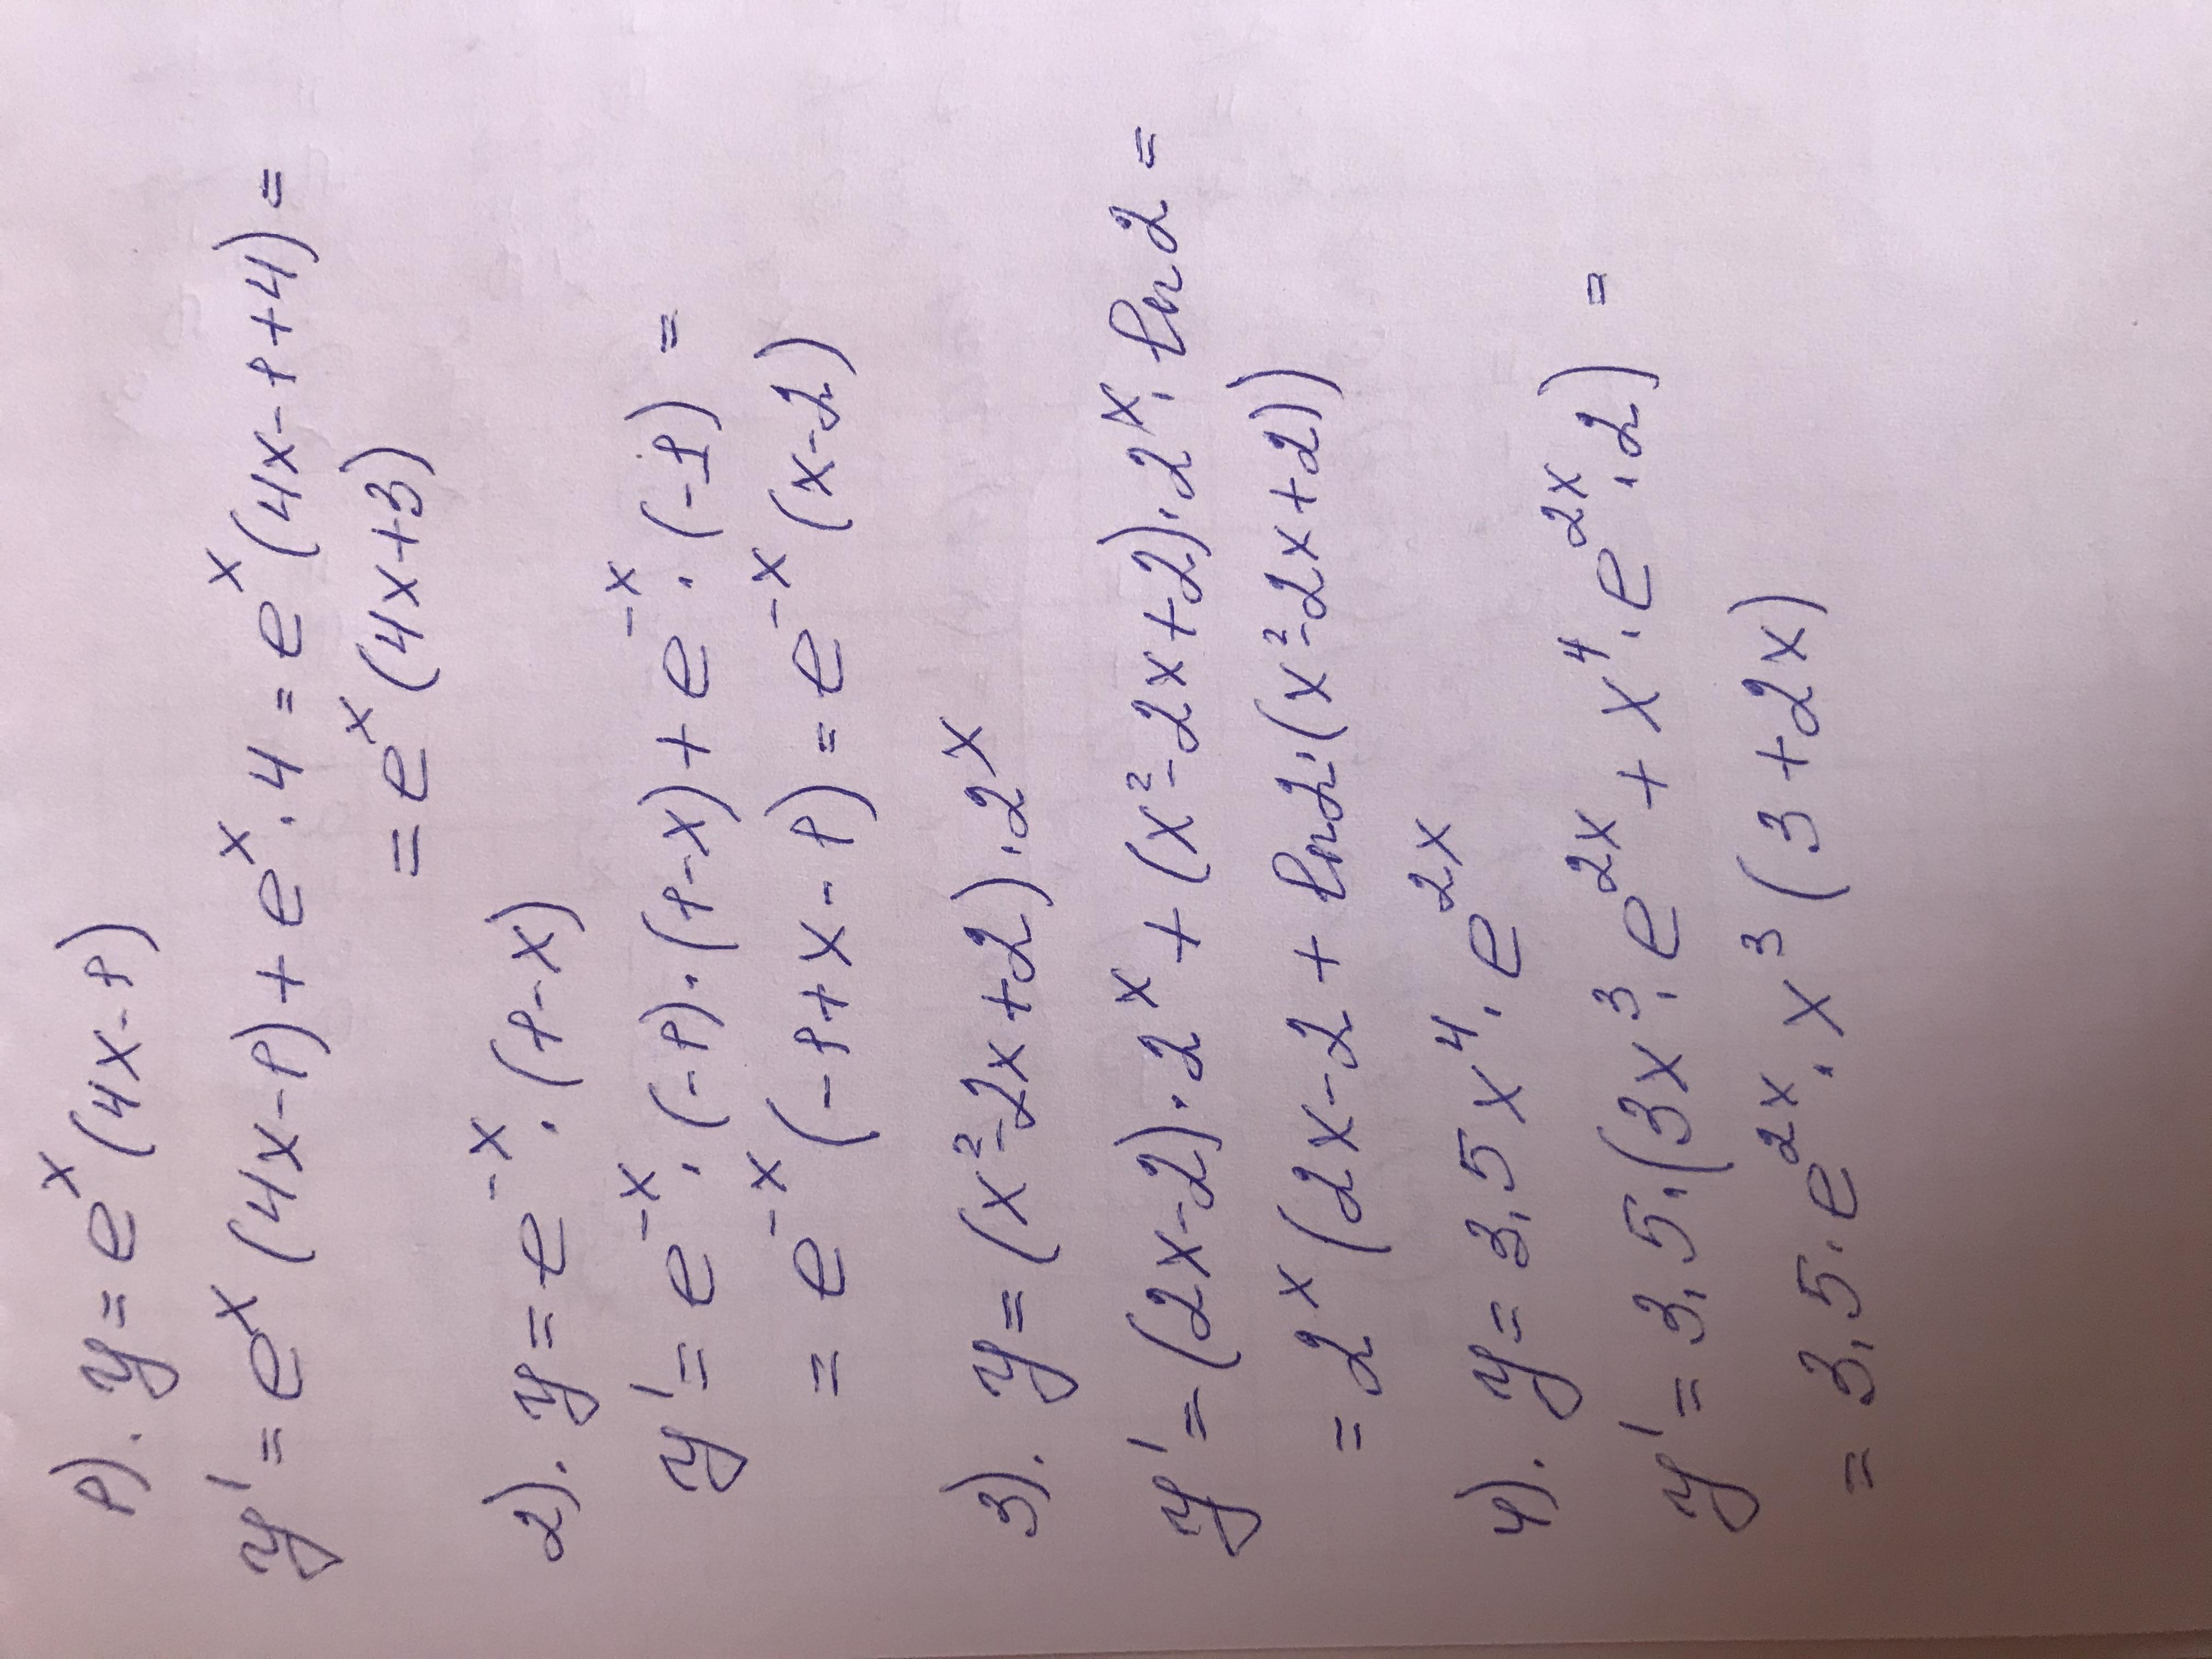 1). y = eˣ(4x-1)
y' = eˣ(4x-1) + eˣ·4 = eˣ(4x-1+4) =
= eˣ(4x+3)
2). y = e⁻ˣ·(1-x)
y' = e⁻ˣ·(-1)·(1-x) + e⁻ˣ·(-1) =
= e⁻ˣ(-1+x-1) = e⁻ˣ(x-2)
3). y = (x²-2x+2)·2ˣ
y' = (2x-2)·2ˣ + (x²-2x+2)·2ˣ·ln2 =
= 2ˣ(2x-2 + ln2·(x²-2x+2))
4). y = 3,5x⁴·e²ˣ
y' = 3,5·(3x³·e²ˣ + x⁴·e²ˣ·2) =
= 3,5·e²ˣ·x³(3+2x)